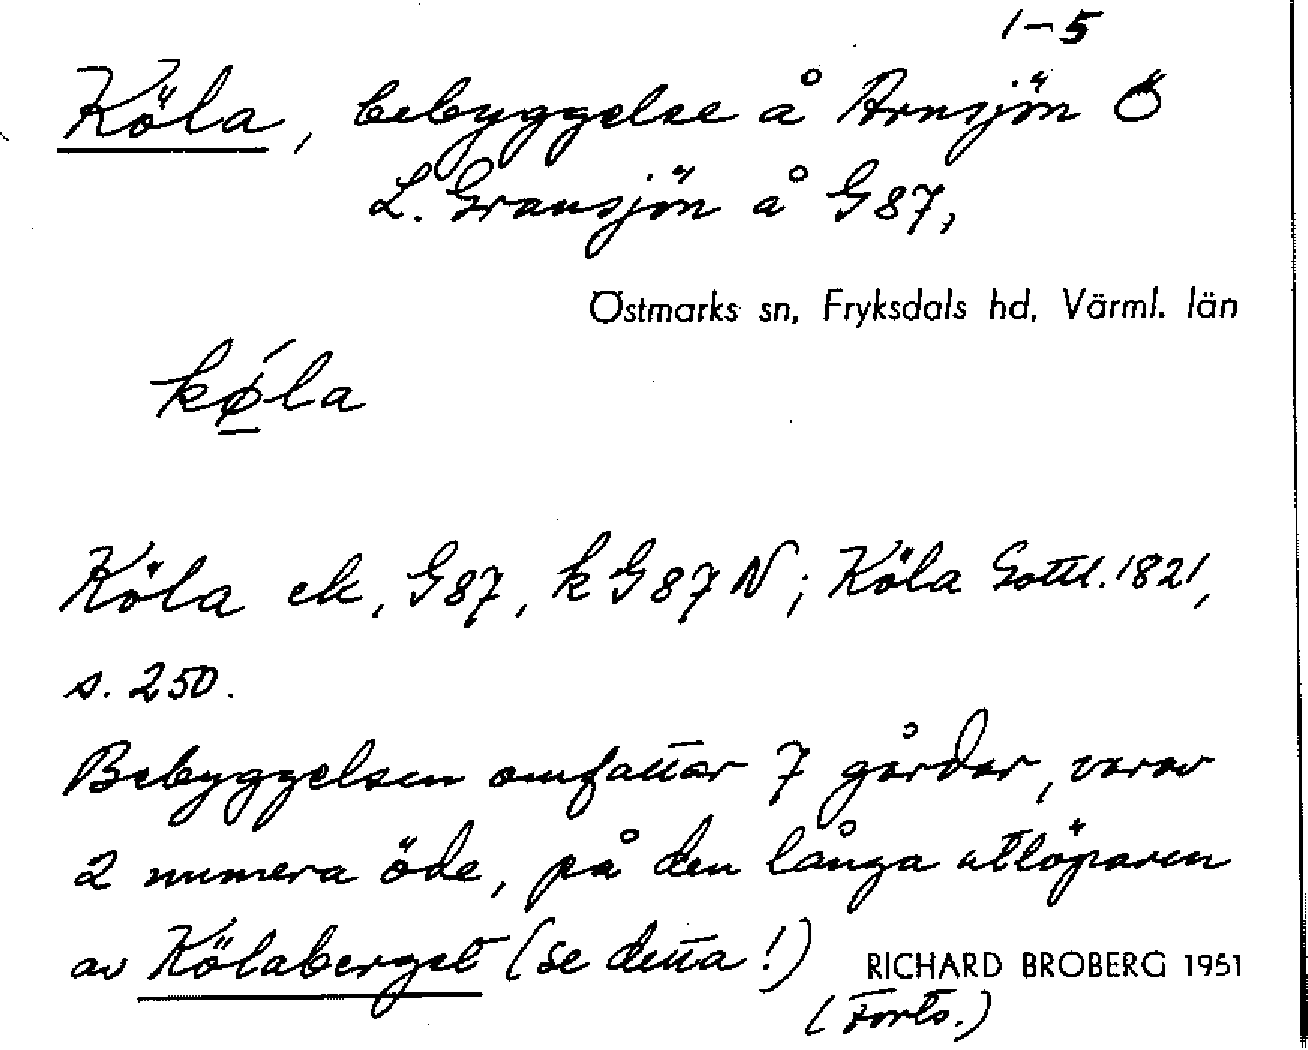 1-5
Köla, bebyggelse å Arnsjön Ö
L. Gransjön å G 87,
Östmarks sn, Fryksdals hd, Värml. län
kǿla
Köla ek, G87, k G87 N; Köla Gottl. 1821,
s. 250.
Bebyggelsen omfattar 7 gårdar, varav
2 numera öde, på den långa utlöparen
av Kölaberget (se detta!)
RICHARD BROBERG 1951
(Forts.)